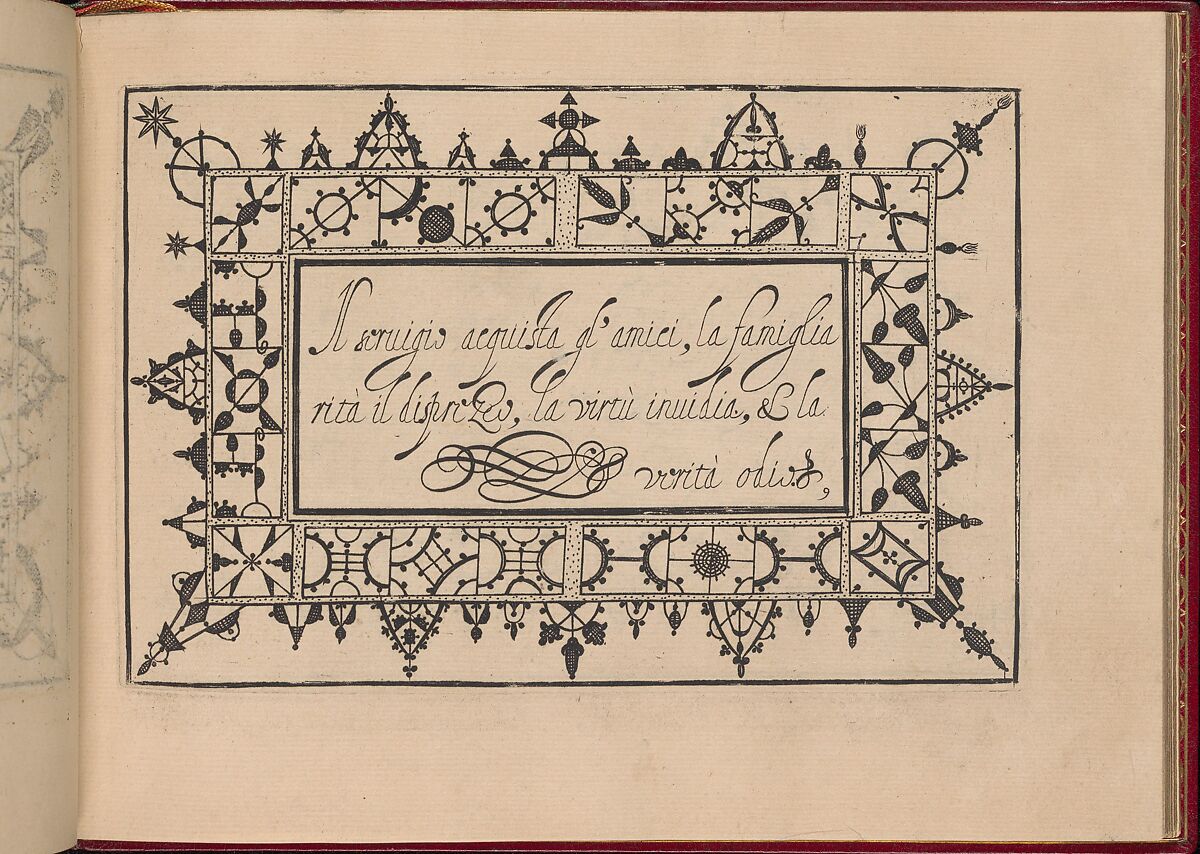 Il seruigio acquista gl' amici, la famiglia
rità il disprezzo, la virtù inuidia, & la
verità odio,